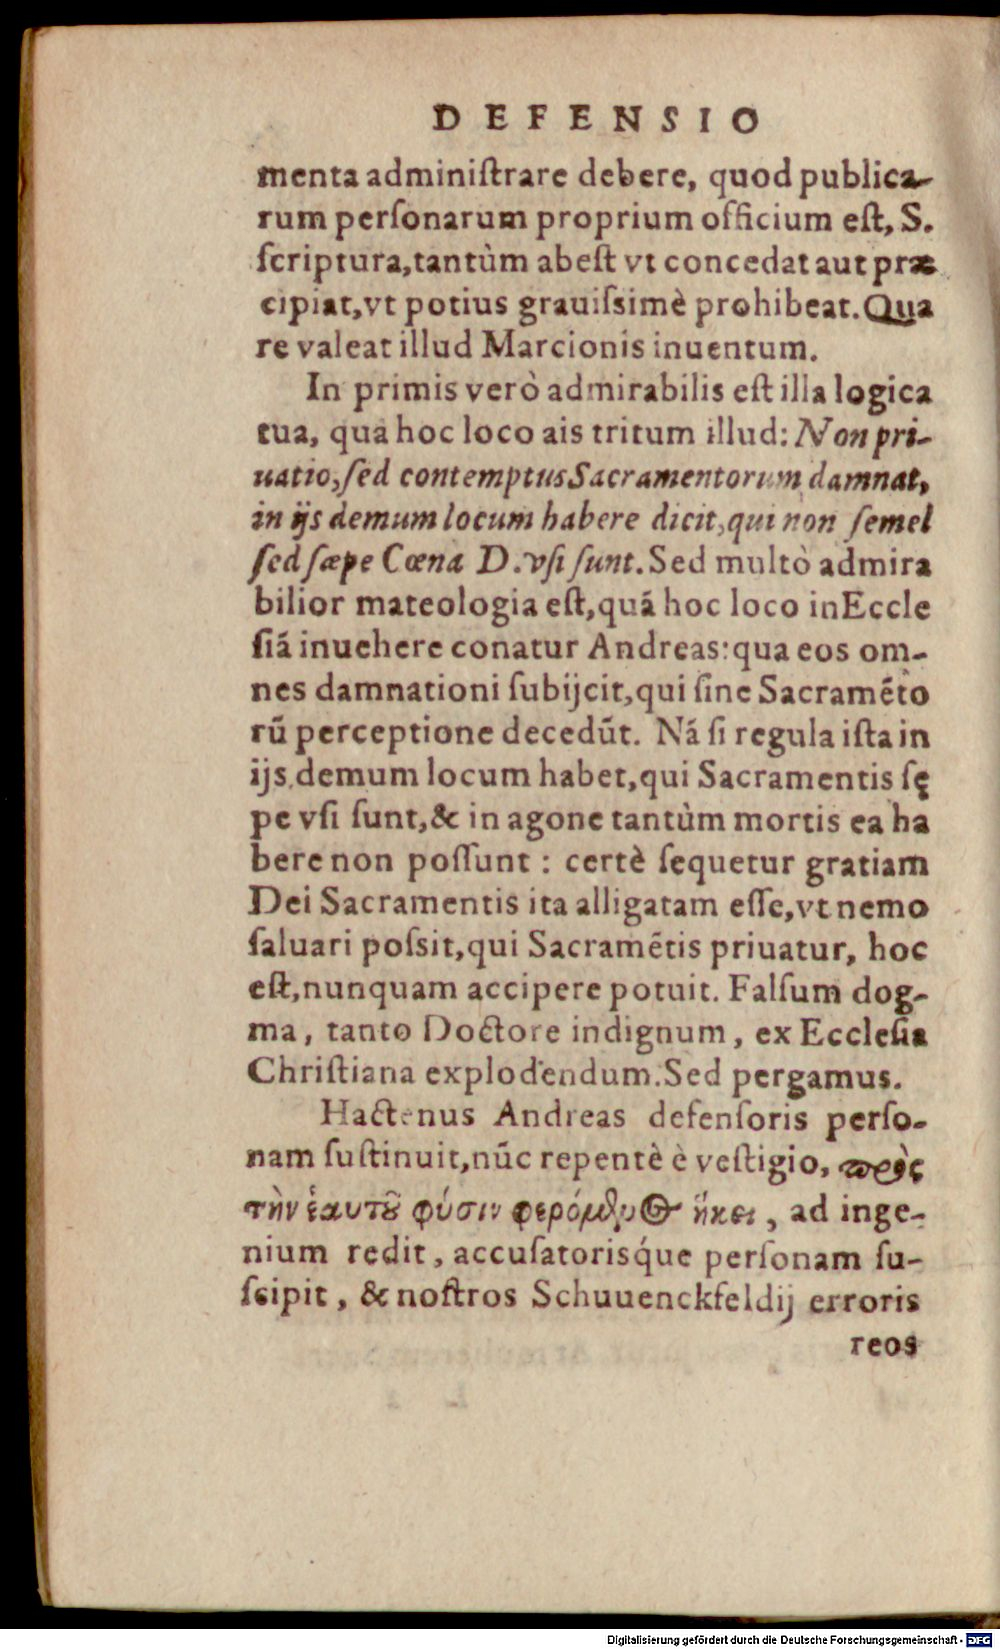 DEFENSIO
menta adminiſtrare debere, quod publica-
rum perſonarum proprium officium eſt, S.
ſcriptura,tantùm abeſt vt concedat aut præ
cipiat,vt potius grauiſsimè prohibeat. Qua
re valeat illud Marcionis inuentum.
In primis verò admirabilis eſt illa logica
tua, qua hoc loco ais tritum illud: Non pri-
uatio,ſed contemptus Sacramentorum damnat,
in ijs demum locum habere dicit,qui non ſemel
ſed ſæpe Cœna D. vſi ſunt. Sed multò admira
bilior mateologia eſt,quā hoc loco in Eccle
ſiā inuehere conatur Andreas: qua eos om-
nes damnationi ſubijcit,qui ſine Sacramēto
rū perceptione decedūt. Nā ſi regula iſta in
ijs demum locum habet,qui Sacramentis ſę
pe vſi ſunt,& in agone tantùm mortis ea ha
bere non poſſunt: certè ſequetur gratiam
Dei Sacramentis ita alligatam eſſe,vt nemo
ſaluari poſsit,qui Sacramētis priuatur, hoc
eſt,nunquam accipere potuit. Falſum dog-
ma, tanto Doctore indignum, ex Eccleſia
Chriſtiana explodendum. Sed pergamus.
Hactenus Andreas defenſoris perſo-
nam ſuſtinuit,nūc repentè è veſtigio, πρὸς
τὴν ἑαυτοῦ φύσιν φερόμενος ἥκει, ad inge-
nium redit, accuſatorisq́ue perſonam ſu-
ſcipit, & noſtros Schuuenckfeldij erroris
reos
Digitalisierung gefördert durch die Deutsche Forschungsgemeinschaft - DFG